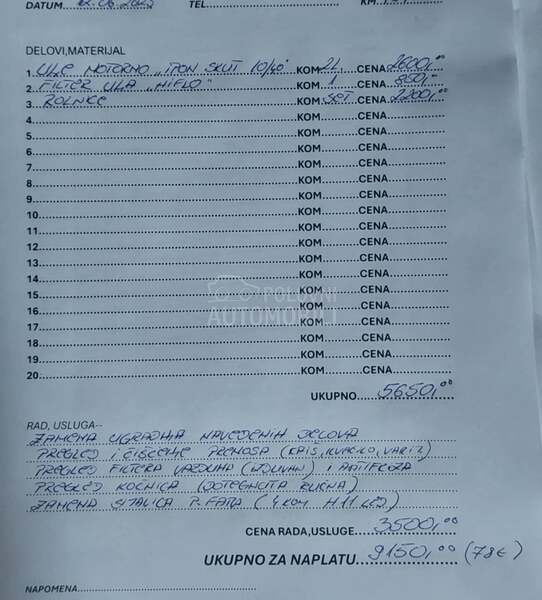 DATUM....12.06.202....TEL...............KM...
DELOVI,MATERIJAL
1 ULJE MOTORNO "IPON SKUT 10/40" KOM 2L CENA 2600,00
2 FILTER ULJA "HIFLO" KOM 1 CENA 850,00
3 ROLNICE KOM SET CENA 2200,00
4 KOM CENA
5 KOM CENA
6 KOM CENA
7 KOM CENA
8 KOM CENA
9 KOM CENA
10 KOM CENA
11 KOM CENA
12 KOM CENA
13 KOM CENA
14 KOM CENA
15 KOM CENA
16 KOM CENA
17 KOM CENA
18 KOM CENA
19 KOM CENA
20 KOM CENA
POLOVNI
AUTOMOBILI
UKUPNO 5650,00
RAD, USLUGA--
ZAMENA UGRADNJA NAVEDENIH DELOVA
PREGLED I ČIŠĆENJE PRENOSA (KAIŠ, KVAČILO, VARIJ.)
PREGLED FILTERA VAZDUHA (IZDUVAN) I ANTIFRIZA
PREGLED KOČNICA (DOTEGNUTA RUČNA)
ZAMENA SIJALICA P. FARA (4 KOM H11 LED)
CENA RADA,USLUGE 3500,00
UKUPNO ZA NAPLATU 9150,00 (78€)
NAPOMENA